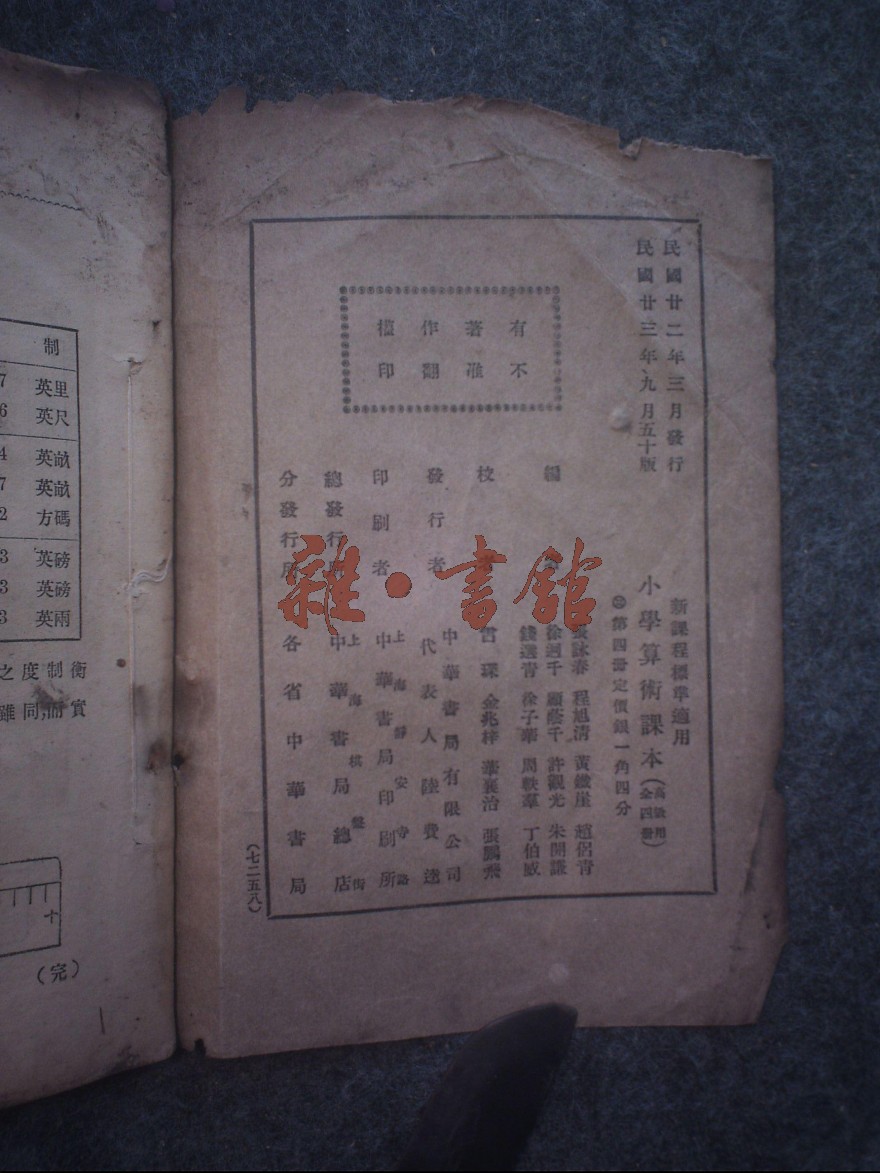 民國廿二年三月發行
民國廿三年九月五十版
新課程標準適用
小學算術課本(高級用全四冊)
第四冊定價銀一角四分
有著作權
不准翻印
編
詠春 程旭清 黃鐵崖 趙侶青
徐迥千 顧蔭千 許觀光 朱開謙
錢選青 徐子華 周軼羣 丁伯威
校
雷琛 金兆梓 華襄治 張鵬飛
發行者
中華書局有限公司
代表人 陸費逵
印刷者
上海靜安寺路
中華書局印刷所
總發行
上海棋盤街
中華書局總店
分發行所
各省中華書局
(七二五八)
雜·書館
制
7 英里
6 英尺
4 英畝
7 英畝
2 方碼
3 英磅
3 英磅
3 英兩
衡制度之
實而,同雖
十
(完)